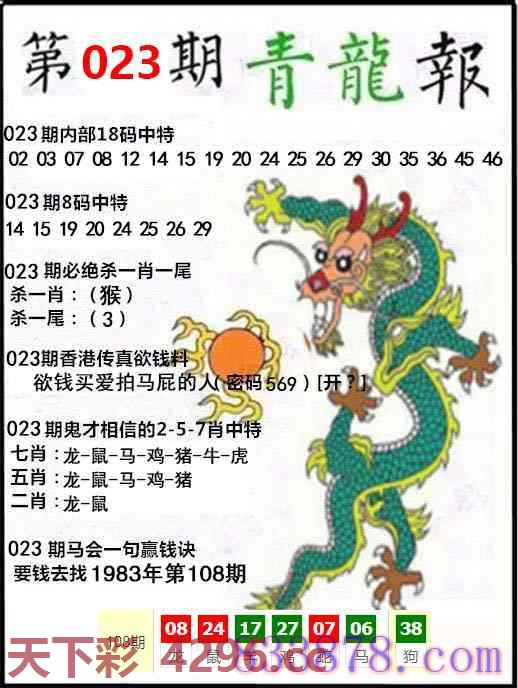 第023期青龍報
023期内部18码中特
02 03 07 08 12 14 15 19 20 24 25 26 29 30 35 36 45 46
023期8码中特
14 15 19 20 24 25 26 29
023 期必绝杀一肖一尾
杀一肖：（猴）
杀一尾：（3）
023期香港传真欲钱料
欲钱买爱拍马屁的人（密码569）[开？]
023期鬼才相信的2-5-7肖中特
七肖：龙-鼠-马-鸡-猪-牛-虎
五肖：龙-鼠-马-鸡-猪
二肖：龙-鼠
023 期马会一句赢钱诀
要钱去找1983年第108期
108期 08 24 17 27 07 06 38
龙 鼠 鸡 蛇 马 狗
天下彩